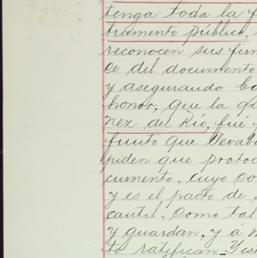 tenga toda la f
trumento público,
reconocen sus fir
ce del documento
y asegurando ba
honor, que la
nez del Río, fué
fruto que llevaba
piden que proto
cumento, cuyo co
y es el pacto de
cantil. Como tal
y guardan, y á
to ratifican. Y